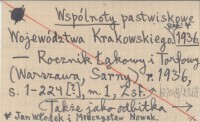 Wspólnoty pastwiskowe
Województwa Krakowskiego. 1936.
— Rocznik Łąkowy i Torfowy
(Warszawa, Sarny) r. 1936,
s. 1-224 [?], m. 1, 2 sf.
Także jako odbitka →
* Jan Włodek i Mieczysław Nowak.